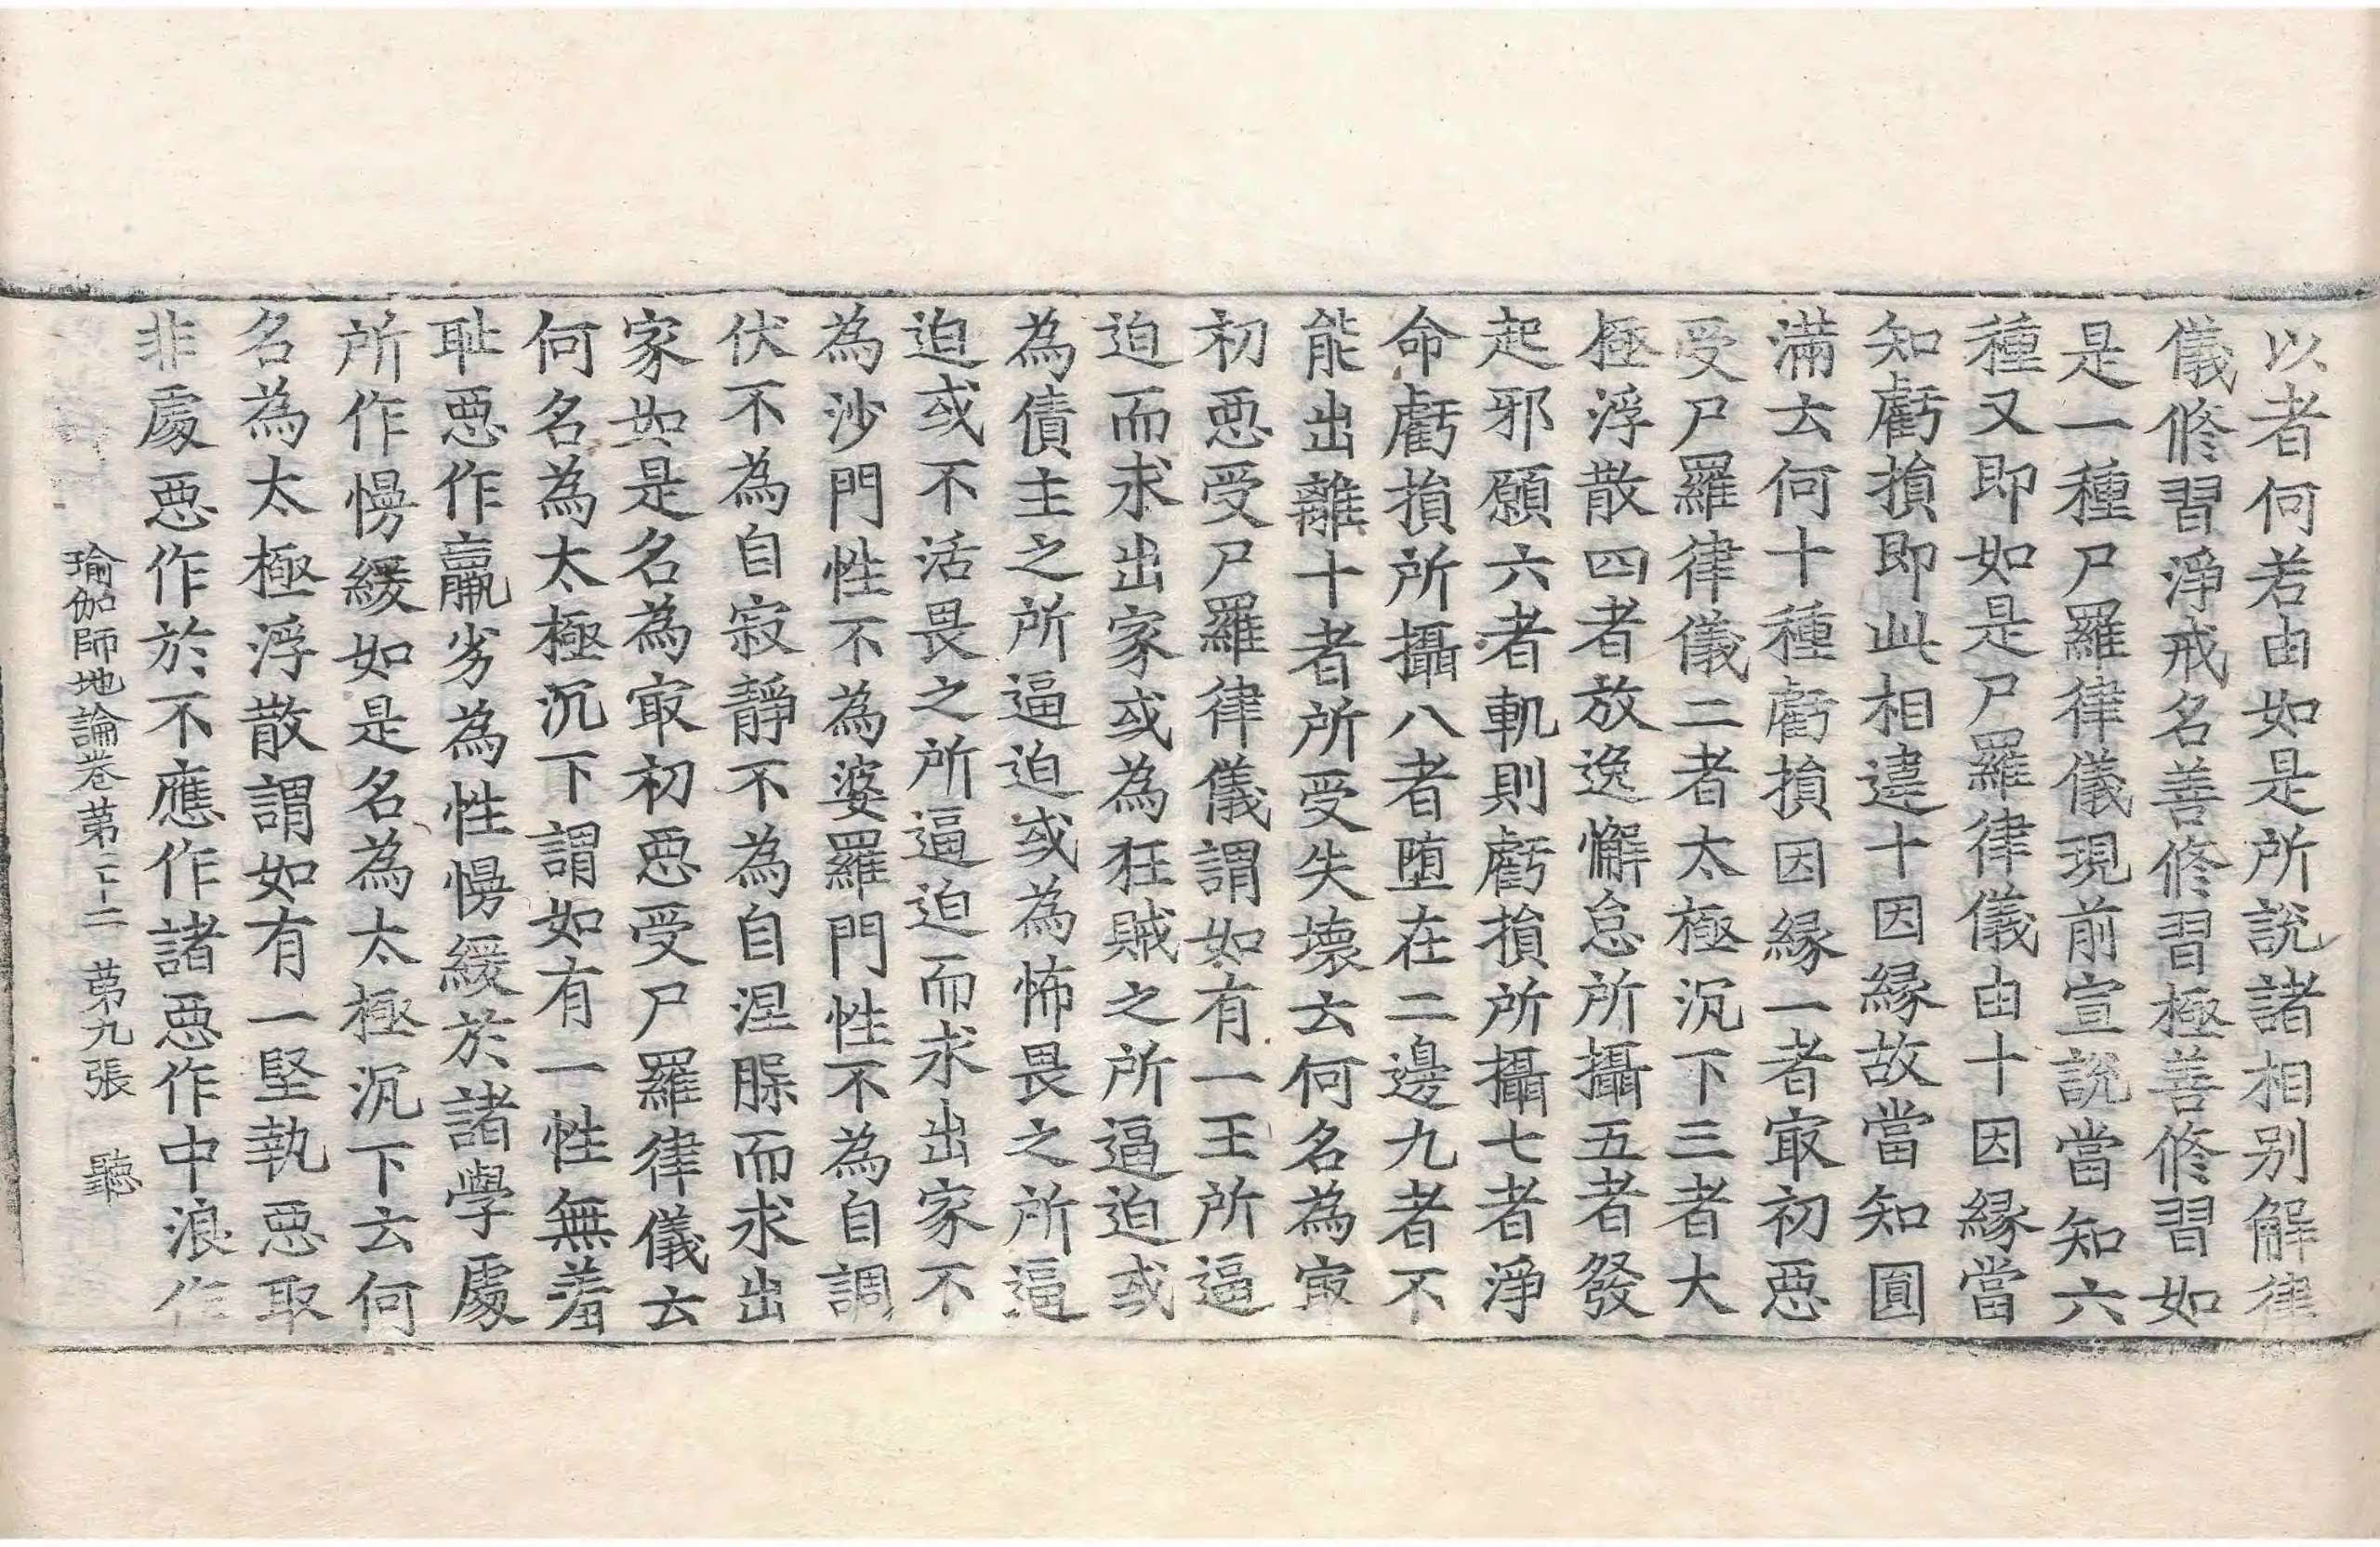 以者何若由如是所說諸相别解律
儀修習淨戒名善修習極善修習如
是一種尸羅律儀現前宣說當知六
種又即如是尸羅律儀由十因緣當
知虧損即此相違十因緣故當知圓
滿云何十種虧損因緣一者㝡初惡
受尸羅律儀二者太極沉下三者大
極浮散四者放逸懈怠所攝五者發
起邪願六者軌則虧損所攝七者淨
命虧損所攝八者堕在二邊九者不
能出離十者所受失壞云何名為㝡
初惡受尸羅律儀謂如有一王所逼
迫而求出家或為狂賊之所逼迫或
為債主之所逼迫或為怖畏之所逼
迫或不活畏之所逼迫而求出家不
為沙門性不為婆羅門性不為自調
伏不為自寂靜不為自涅槃而求出
家如是名為㝡初惡受尸羅律儀云
何名為太極沉下謂如有一性無羞
耻惡作羸劣為性慢緩於諸學處
所作慢緩如是名為太極沉下云何
名為太極浮散謂如有一堅執惡取
非處惡作於不應作諸惡作中浪作
瑜伽師地論卷第二十二 第九張 聽